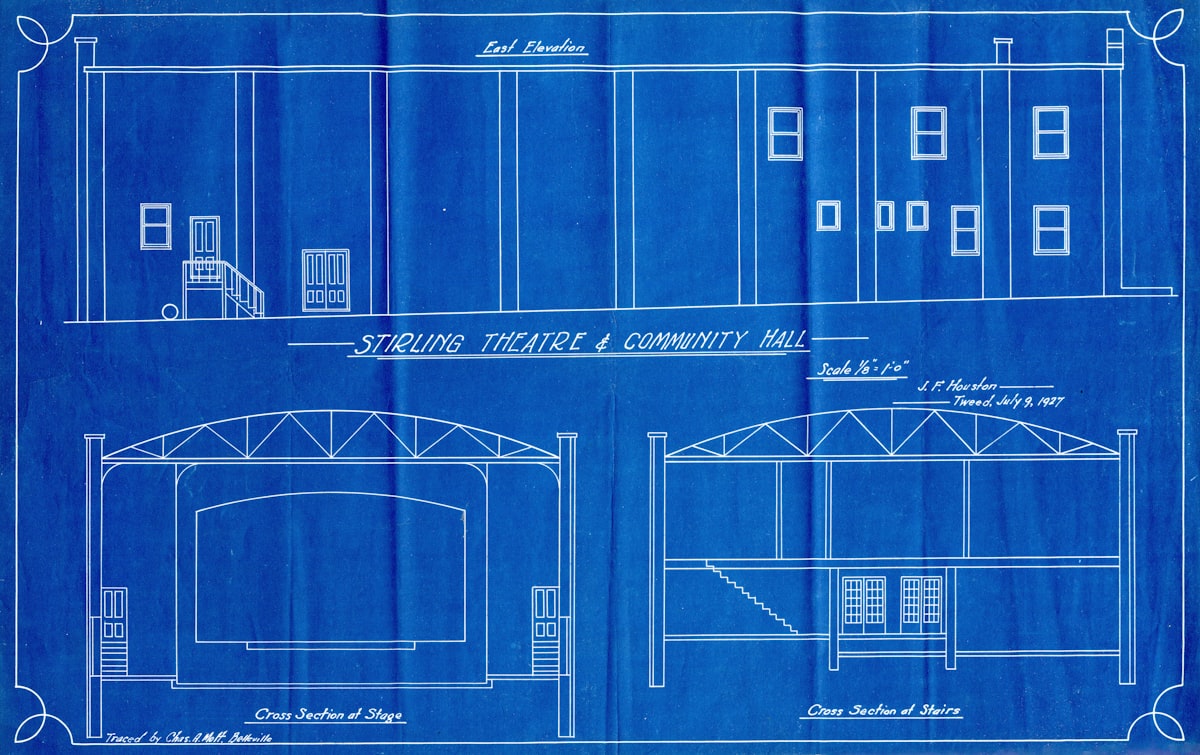 East Elevation
STIRLING THEATRE & COMMUNITY HALL
Scale 1/8" = 1'-0"
J. F. Houston
Tweed, July 9, 1927
Cross Section at Stage
Cross Section at Stairs
Traced by Chas. A. Mott, Belleville